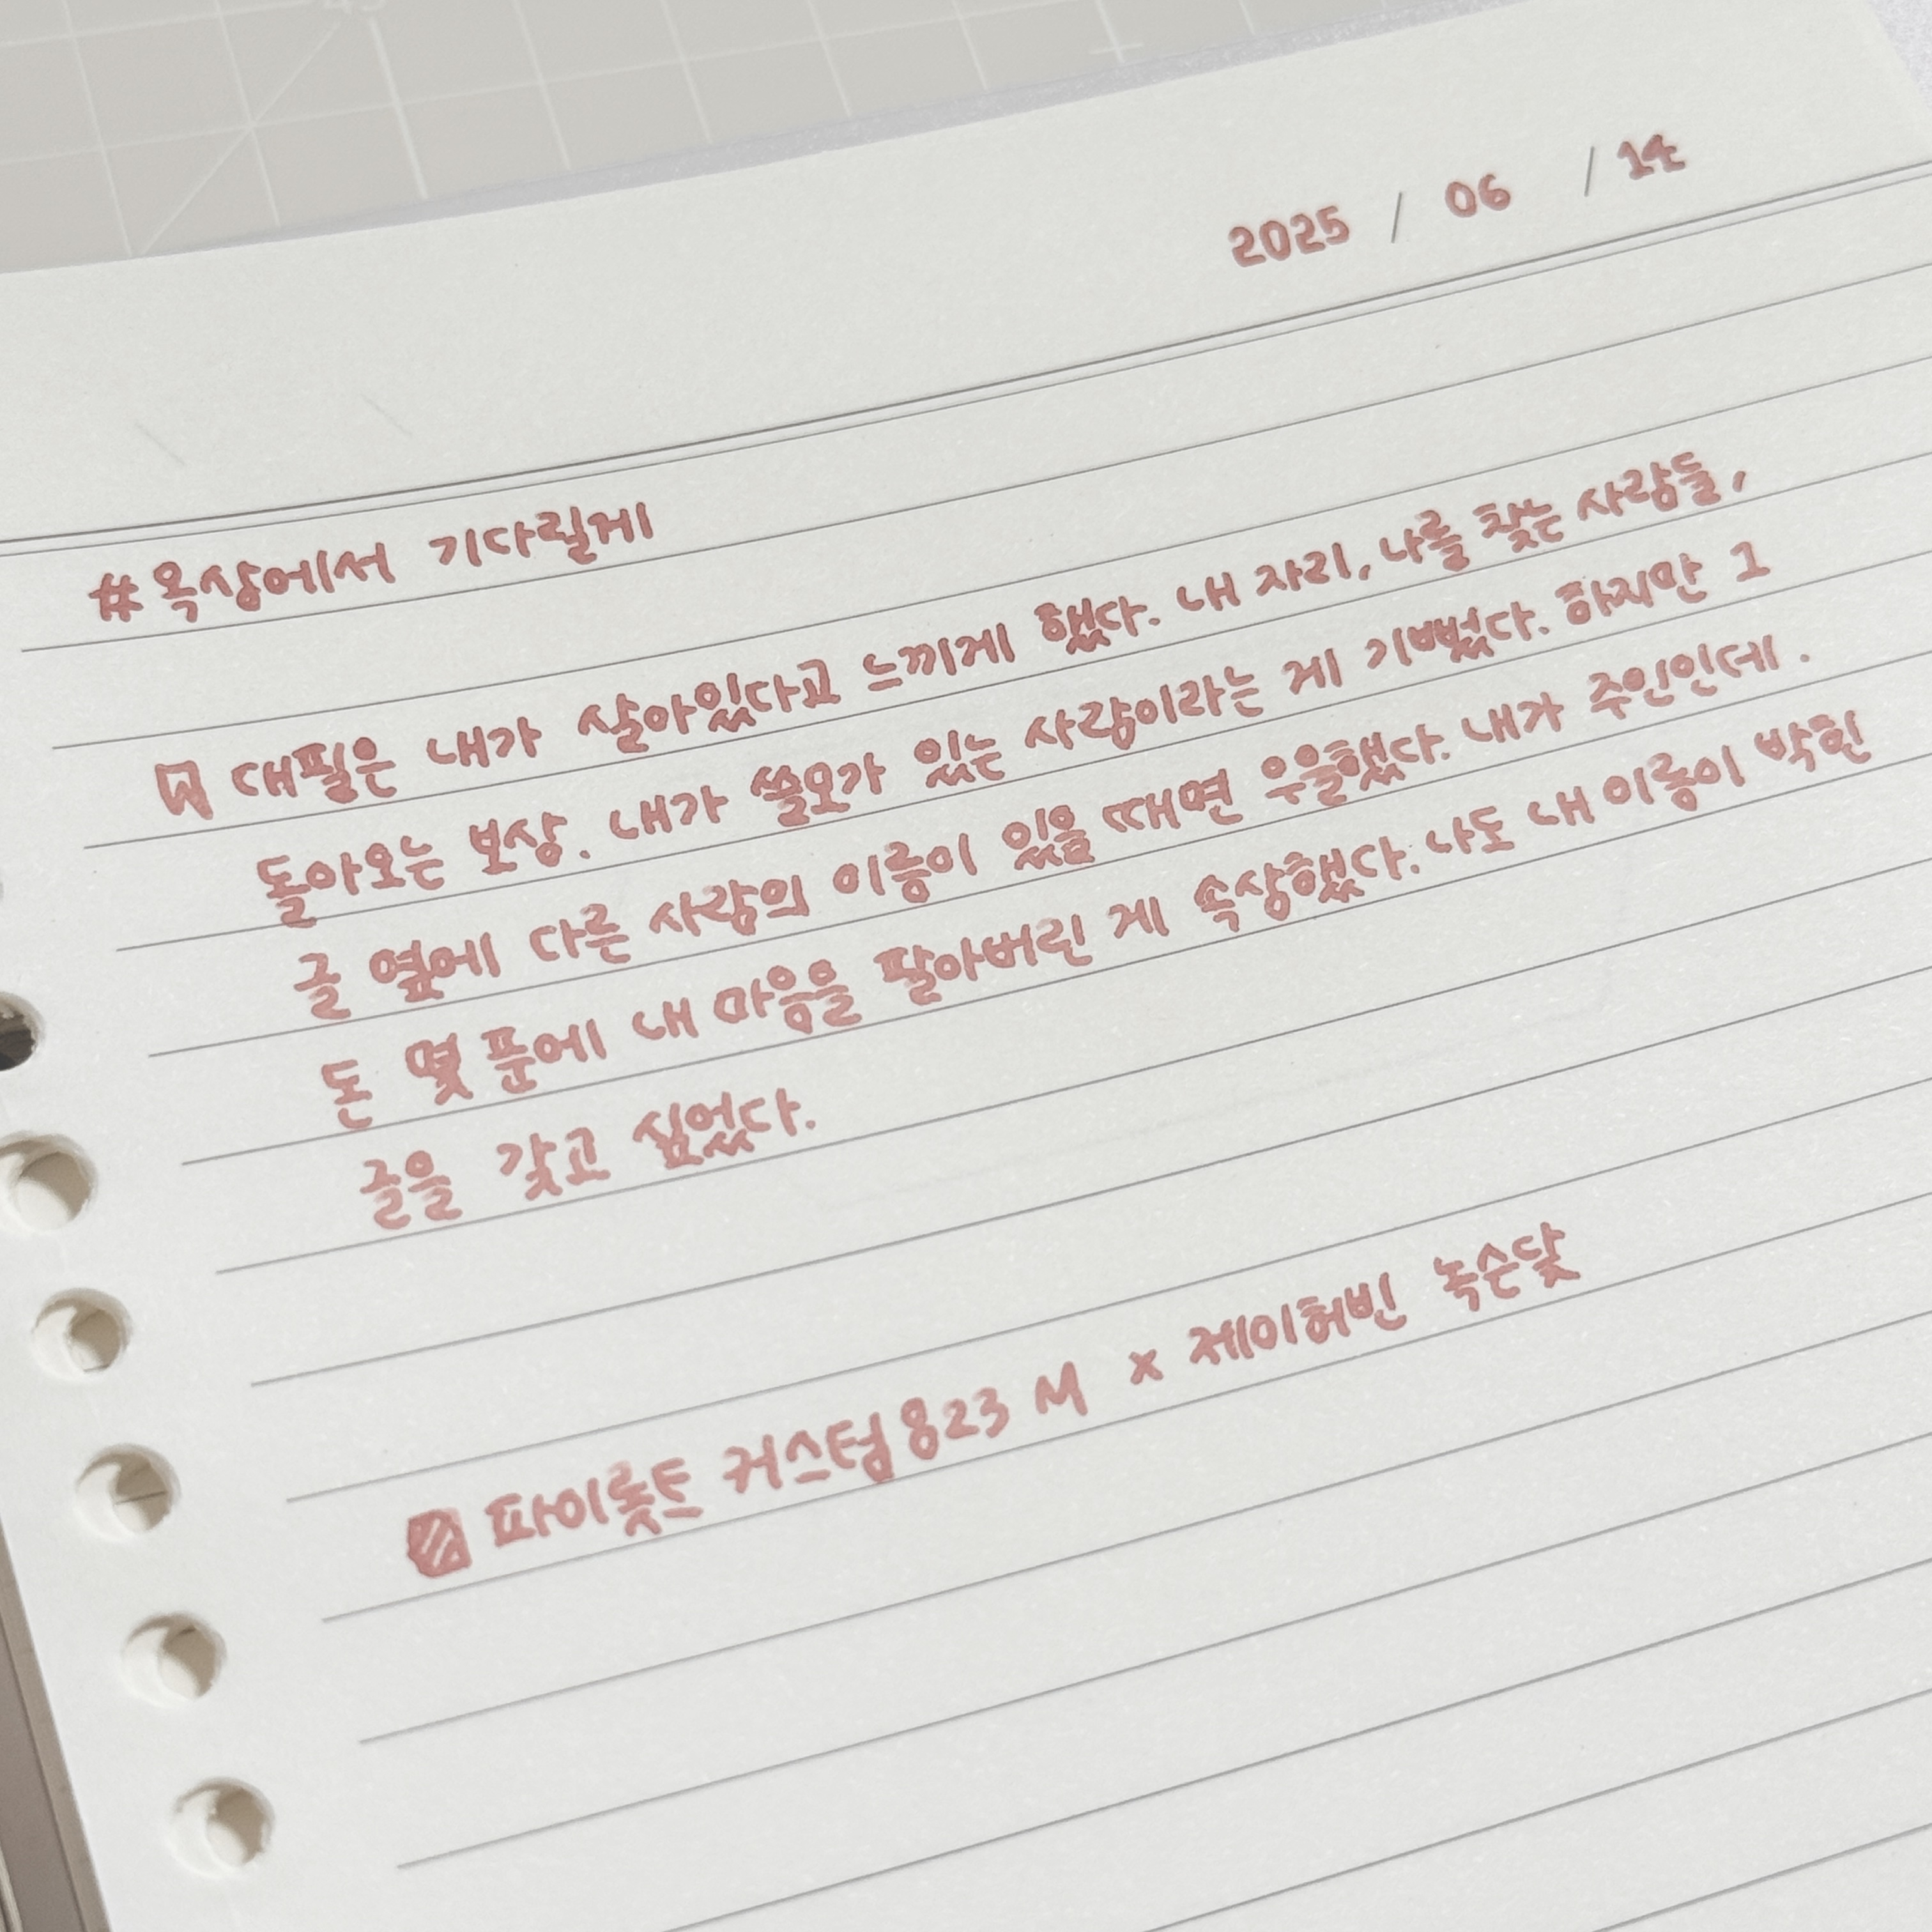 2025 / 06 / 14
#옥상에서 기다릴게
대필은 내가 살아있다고 느끼게 했다. 내 자리, 나를 찾는 사람들,
돌아오는 보상. 내가 쓸모가 있는 사람이라는 게 기뻤다. 하지만 그
글 옆에 다른 사람의 이름이 있을 때면 우울했다. 내가 주인인데.
돈 몇 푼에 내 마음을 팔아버린 게 속상했다. 나도 내 이름이 박힌
글을 갖고 싶었다.
파이롯트 커스텀 823 M x 제이허빈 녹슨닻